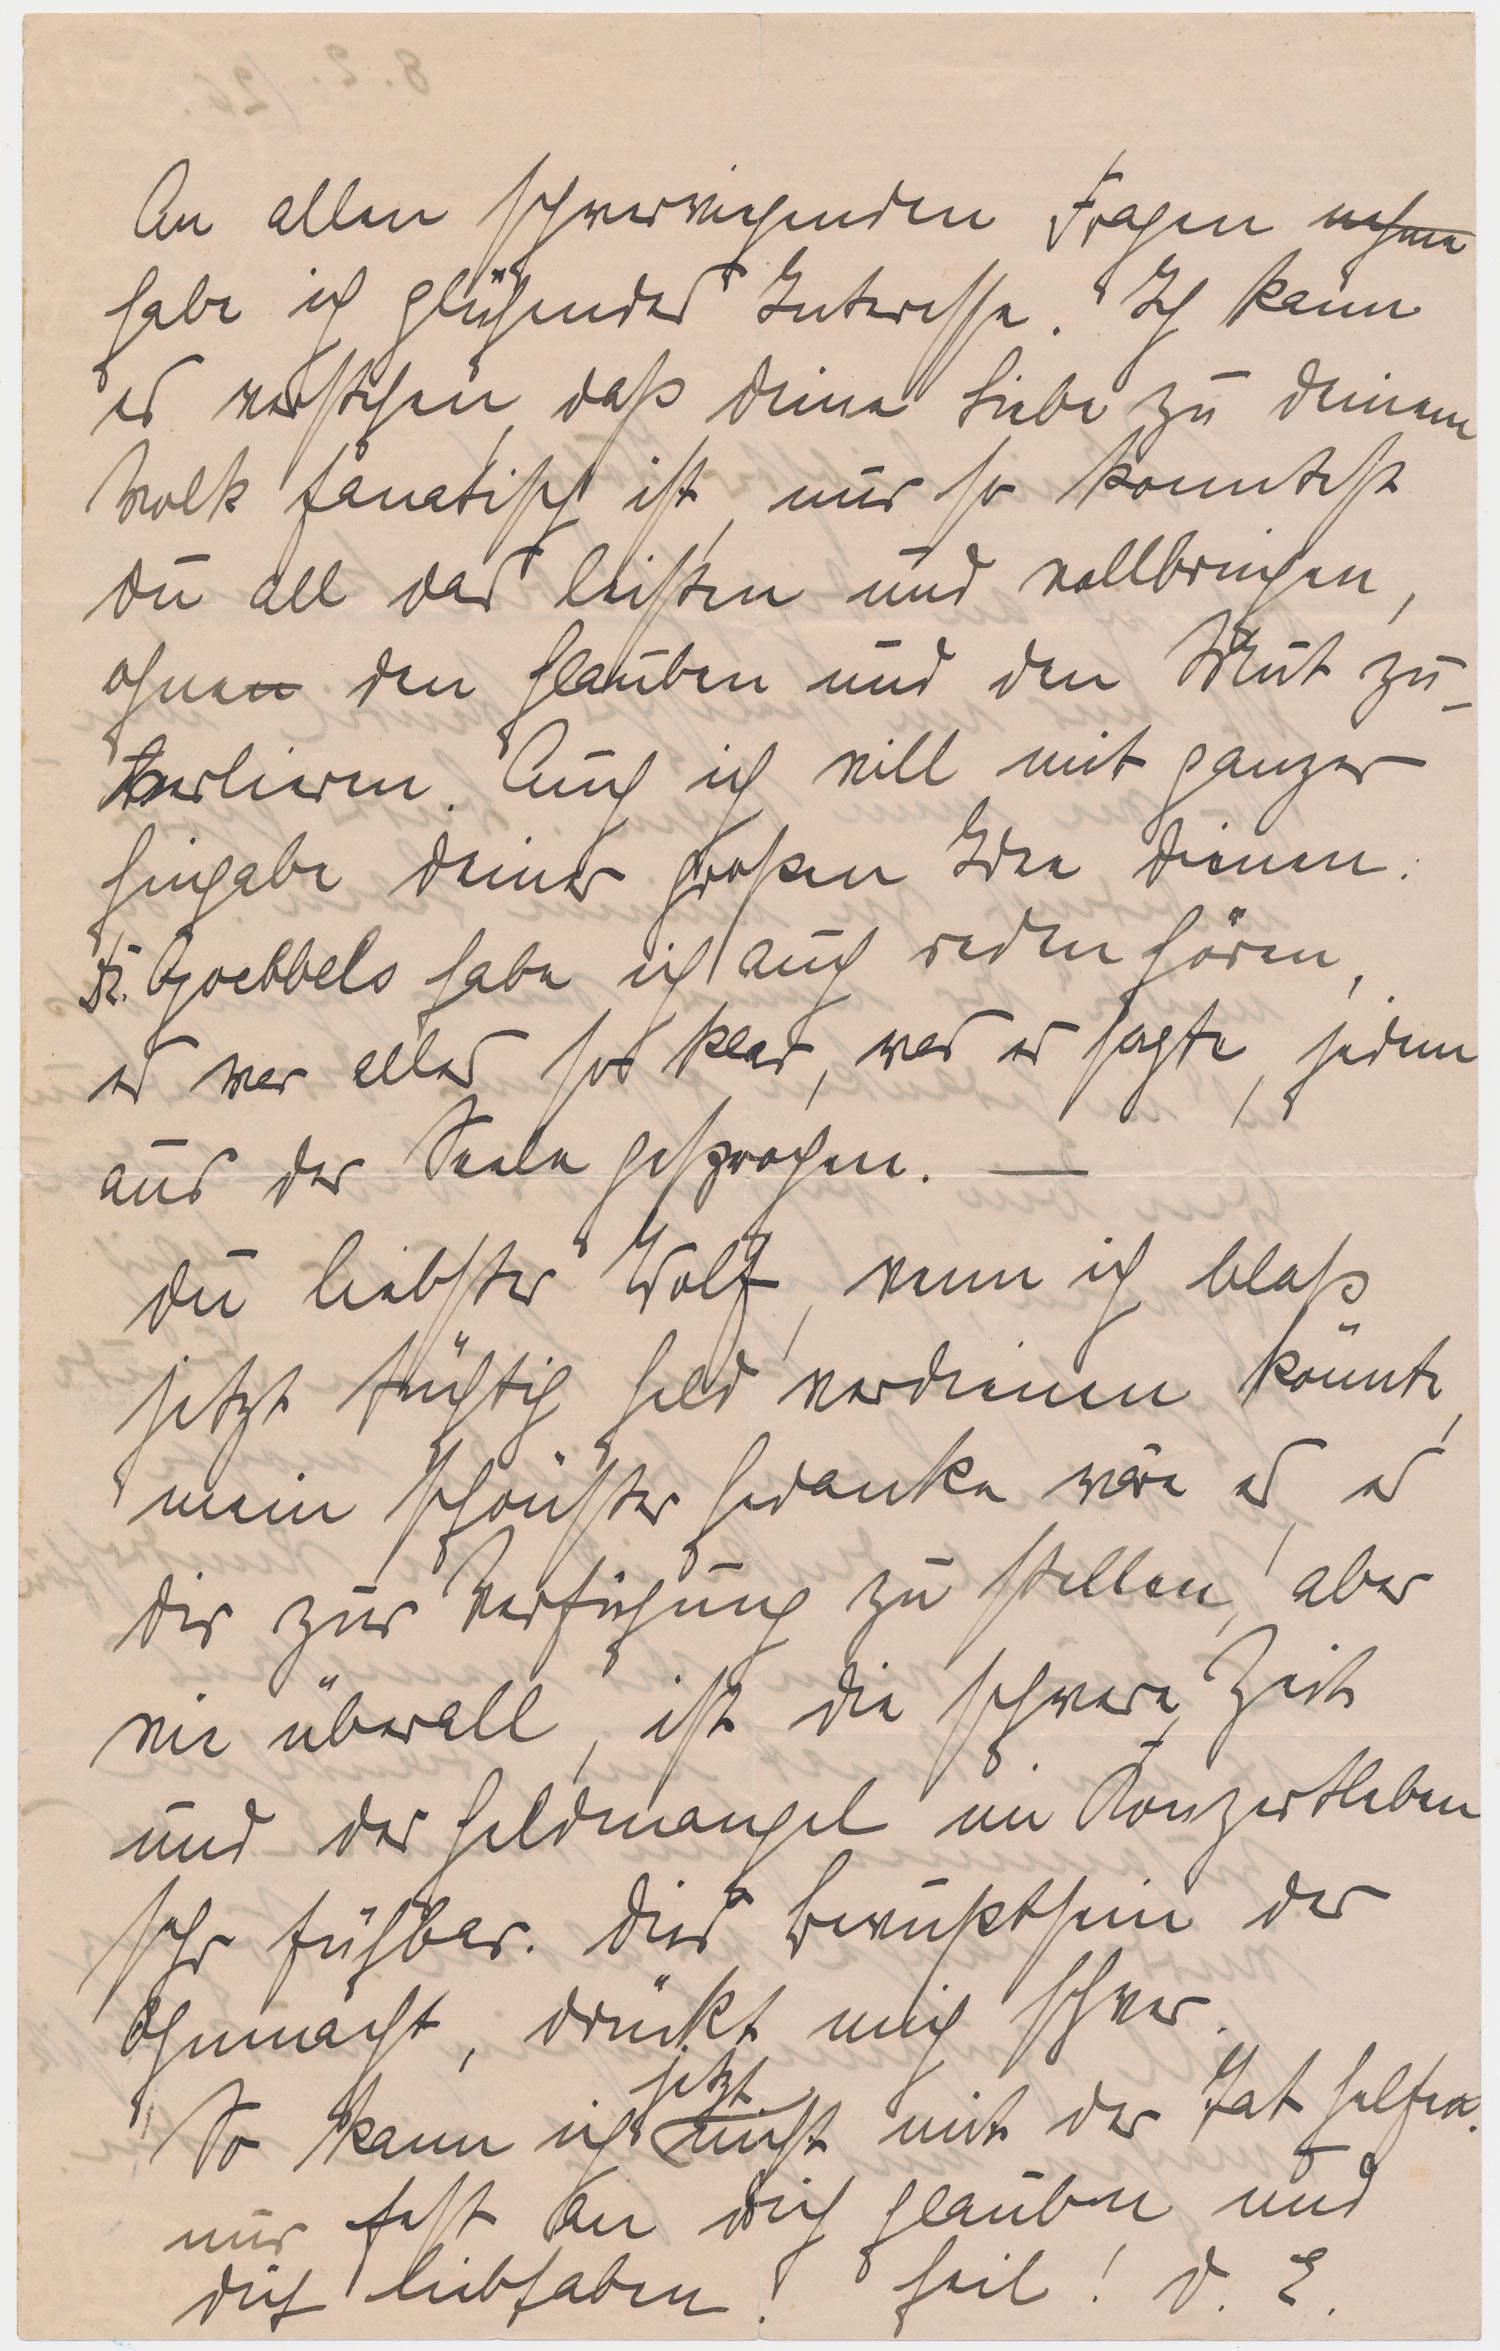 An allen schwerwiegenden Fragen nehme
habe ich glühendes Interesse. Ich kann
es verstehen, daß deine Liebe zu deinem
Volk fanatisch ist, nur so konntest
du all das leisten und vollbringen,
ohnen den Glauben und den Mut zu
verlieren. Auch ich will mit ganzer
Hingabe deiner großen Idee dienen.
Dr. Goebbels habe ich auch reden hören,
es war alles so klar, was er sagte, jedem
aus der Seele gesprochen. —
Du liebster Wolf, wenn ich bloß
jetzt tüchtig Geld verdienen könnte,
mein schönster Gedanke wäre es, es
dir zur Verfügung zu stellen, aber
wie überall, ist die schwere Zeit
und der Geldmangel im Konzertleben
sehr fühlbar. Dies Bewußtsein der
Ohnmacht, drückt mich schwer.
jetzt
So kann ich nicht mit der Tat helfen.
nur fest an dich glauben und
dich liebhaben! Heil! D. E.